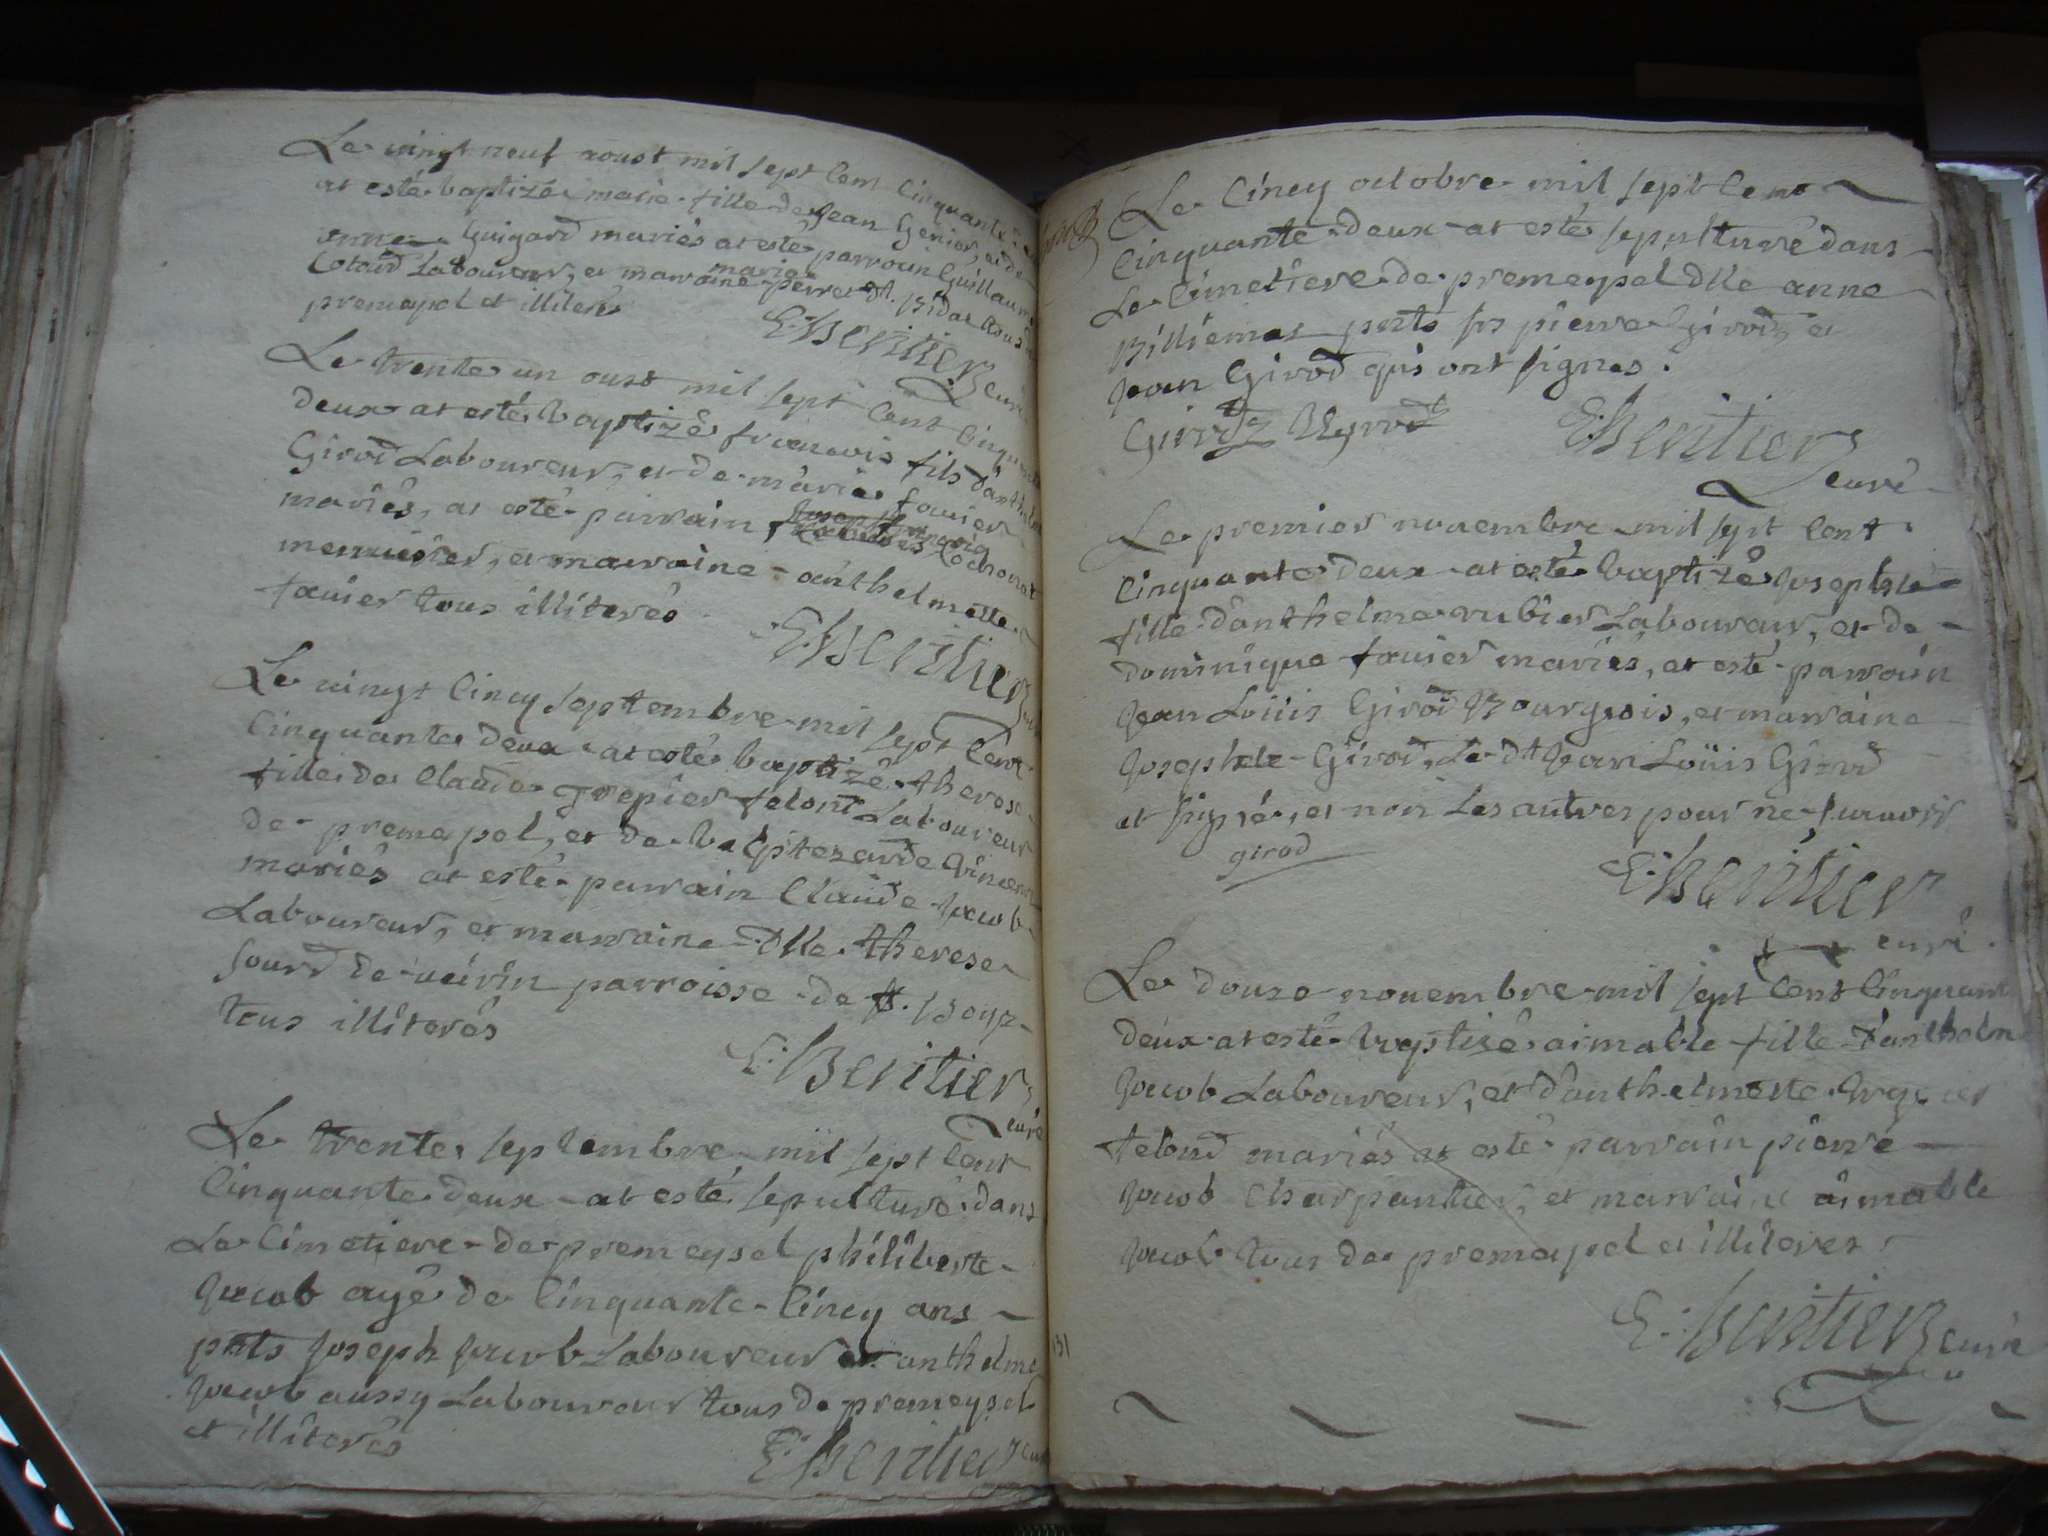 Le vingt neuf aoust mil sept cent cinquante
at esté baptizée marie fille de Jean Genier, et de
anne Guigard mariés at esté parroin Guillaume
Cotard Laboureur, et marraine marie perret
premeysel et illiterés
E. Beritier curé
Le trente un oust mil sept cent cinquante
deux at esté baptizé francois fils d'anthelme
Girod Laboureur, et de marie fauier
mariés, at esté parrain Cochonat
menusier, et marraine anthelmette
fauier tous illiterés
E. Beritier
Le vingt cincq septembre mil sept cent
cinquante deux at esté baptizé therese
fille de Claude grepier felont Laboureur
de premeysel, et de
mariés at esté parrain Claude Jacob
Laboureur, et marraine Dlle therese
sourd de veirin parroisse de st. Boys
tous illiterés
E. Beritier
curé
Le trente septembre mil sept cent
cinquante deux at esté sepulturé dans
Le Cimetiere de premeysel philiberte
Jacob agé de cinquante cincq ans
pnts Joseph Jacob Laboureur et anthelme
Jacob aussy Laboureur tous de premeysel
et illiterés
E. Beritier curé
Le cincq octobre mil sept cent
cinquante deux at esté sepulturé dans
Le Cimetiere de premeysel Dlle anne
Billiemaz pnts srs pierre Girod, et
Jean Girod qui ont signes.
Girod Girod E. Beritier
curé
Le premier nouembre mil sept cent
cinquante deux at esté baptizé Josephte
fille d'anthelme rubier Laboureur, et de
dominique fauier mariés, at esté parroin
Jean Loüis Girod Bourgeois, et marraine
Josephte Girod, Le dt Jean Loüis Girod
at signé, et non Les autres pour ne scavoir
girod
E. Beritier
curé
Le douze nouembre mil sept cent cinquante
deux at esté baptizé aimable fille d'anthelme
Jacob Laboureur, et d'anthelmette
felond mariés at esté parrain pierre
Jacob Charpantier, et marraine aimable
Jacob tous de premeysel et illiteres
E. Beritier curé
131